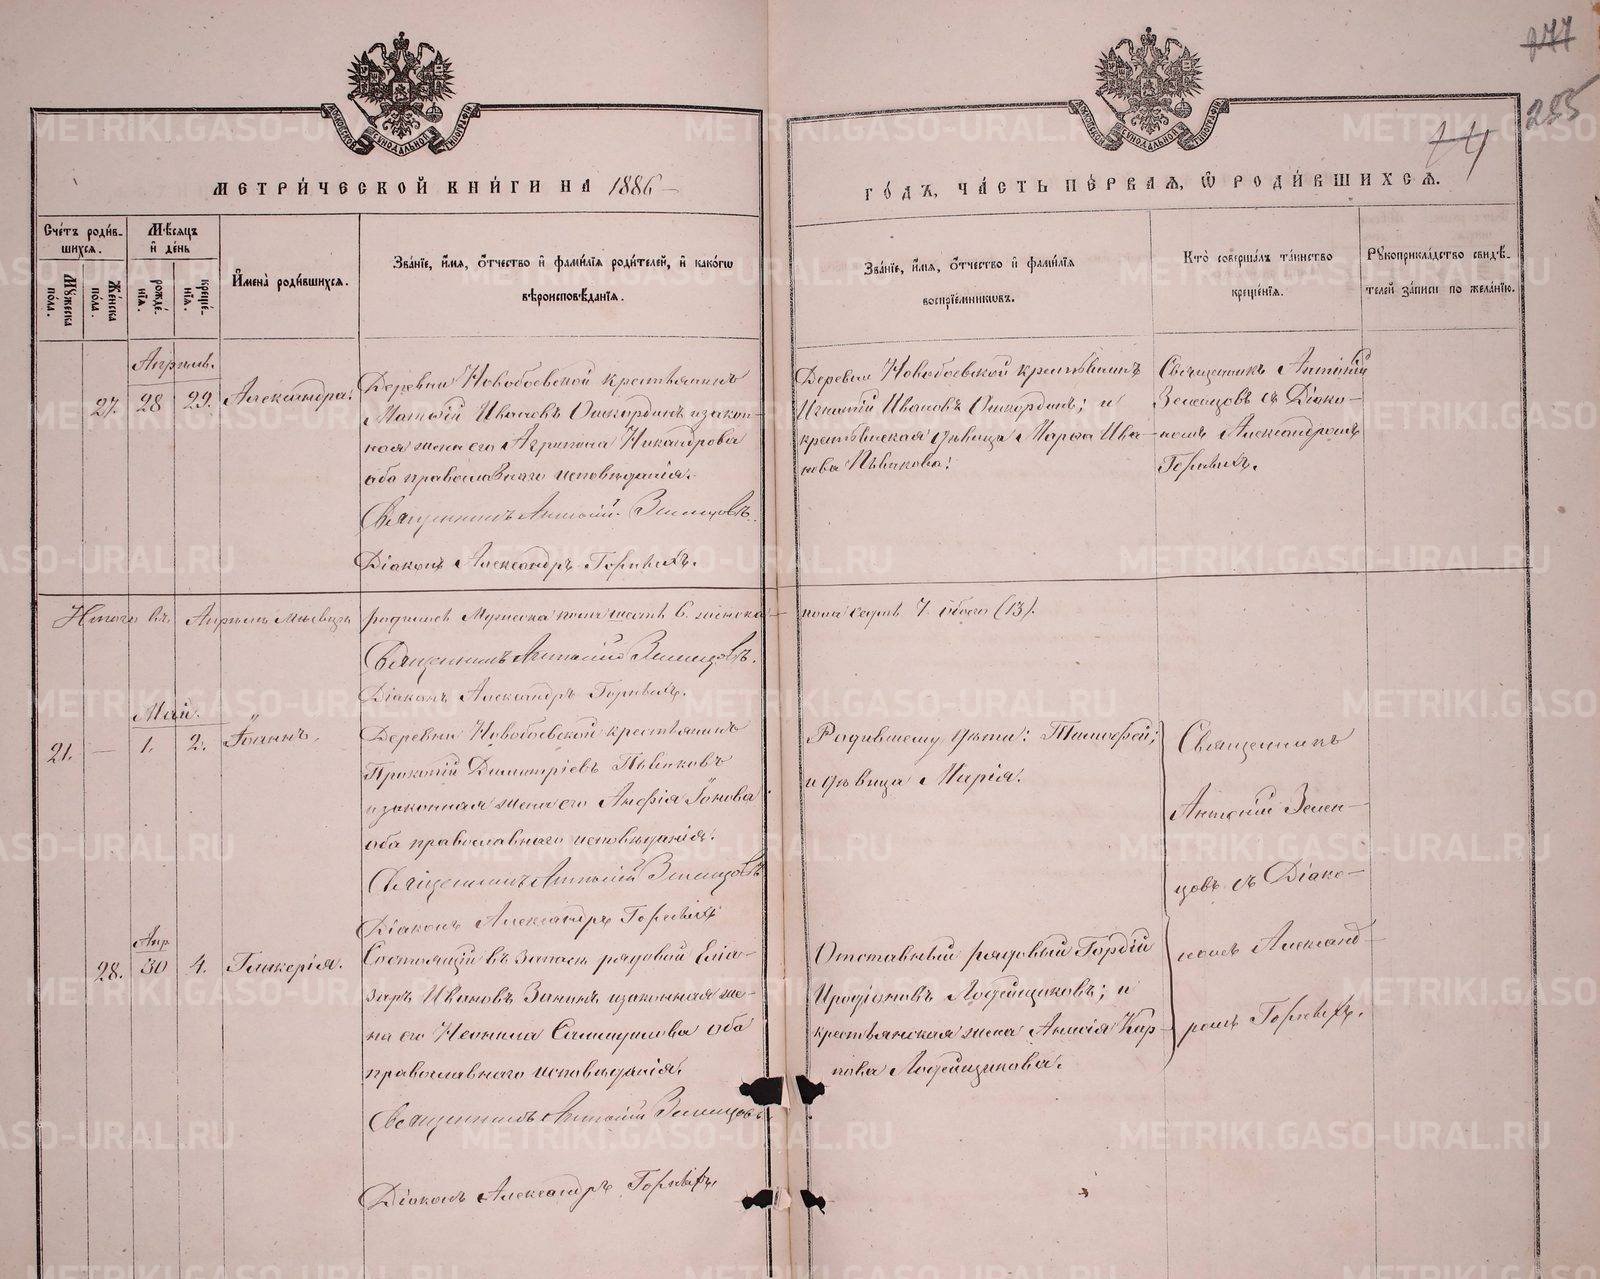 277
255
74
МЕТРИ́ЧЕСКОЙ КНИ́ГИ НА 1886
ГО́ДЪ, ЧА́СТЬ ПЕ́РВАЯ, Ѡ РОДИ́ВШИХСѦ.
Сче́тъ роди́в-
шихся.
Мѣ́сяцъ
и҆ де́нь
Мꙋжеска
по́ла.
Же́нска
по́ла.
рожде́
нїѧ.
креще́-
нїѧ.
И҆мена̀ роди́вшихся.
Зва́нїе, и҆́мѧ, ѻ҆́тчество и҆ фами́лїѧ роди́телей, и҆ како́гѡ
вѣроисповѣ́данїѧ.
Зва́нїе, и҆́мѧ, ѻ҆́тчество и҆ фами́лїѧ
воспрїе́мникѡвъ.
Кто̀ соверша́лъ та́инство
креще́нїѧ.
Рꙋкоприкла́дство свидѣ́-
телей за́писи по жела́нїю.
Апрѣль.
27. 28 29. Александра.
Деревни Новобоевской крестьянинъ
Матѳій Ивановъ Ошкординъ и закон-
ная жена его Агрипина Никандрова
оба православнаго исповѣданія.
Священникъ Антоній Земенцовъ.
Діаконъ Александръ Горныхъ.
Деревни Новобоевской крестьянинъ
Игнатій Ивановъ Ошкординъ; и
крестьянская дѣвица Марѳа Ива-
нова Пьянкова.
Священникъ Антоній
Земенцовъ съ Діако-
номъ Александромъ
Горныхъ.
Итого въ Апрѣлѣ мѣсяцѣ родилось Мужеска пола шесть 6. женска пола семь 7. обоего (13).
Священникъ Антоній Земенцовъ.
Діаконъ Александръ Горныхъ.
Май.
21. — 1. 2. Іоаннъ.
Деревни Новобоевской крестьянинъ
Прокопій Димитріевъ Пьянковъ
и законная жена его Анфія Іонова
оба православнаго исповѣданія.
Священникъ Антоній Земенцовъ
Діаконъ Александръ Горныхъ
Родившему дѣти: Тимофей;
и дѣвица Марія.
Священникъ
Антоній Земен-
цовъ съ Діако-
номъ Александ-
ромъ Горныхъ.
Апр
28. 30 4. Гликерія.
Состоящій въ запасѣ рядовой Еліа-
заръ Ивановъ Занинъ и законная же-
на его Неонила Самуилова оба
православнаго исповѣданія.
Священникъ Антоній Земенцовъ
Діаконъ Александръ Горныхъ,
Отставный рядовый Гордій
Иродіоновъ Лодейщиковъ; и
крестьянская жена Анисія Кар-
пова Лодейщикова.